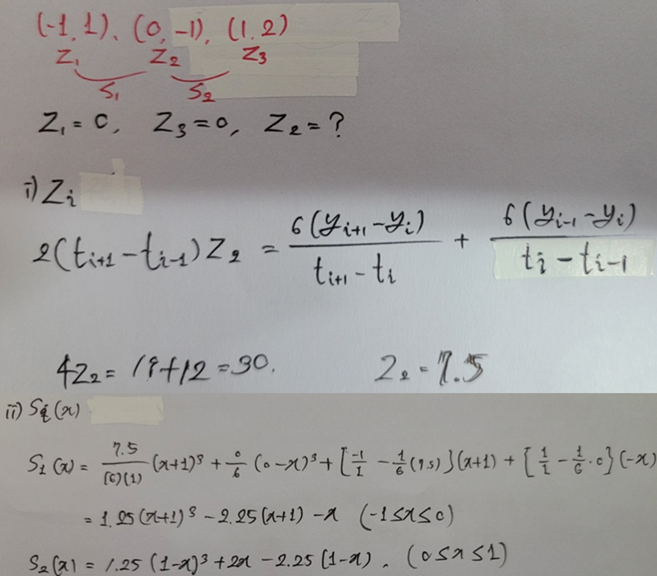 (-1, 1), (0, -1), (1, 2)
Z₁ Z₂ Z₃
S₁ S₂
Z₁ = 0, Z₃ = 0, Z₂ = ?
i) Zᵢ
2(tᵢ₊₁ - tᵢ₋₁)Z₂ = 6(yᵢ₊₁ - yᵢ) / (tᵢ₊₁ - tᵢ) + 6(yᵢ₋₁ - yᵢ) / (tᵢ - tᵢ₋₁)
4Z₂ = 18+12 = 30. Z₂ = 7.5
ii) Sᵢ(x)
S₁(x) = 7.5/(6)(1) (x+1)³ + 0/6 (0-x)³ + [-1/1 - 1/6 (7.5)](x+1) + [1/1 - 1/6 · 0](-x)
= 1.25(x+1)³ - 2.25(x+1) - x (-1≤x≤0)
S₂(x) = 1.25 (1-x)³ + 2x - 2.25 (1-x). (0≤x≤1)